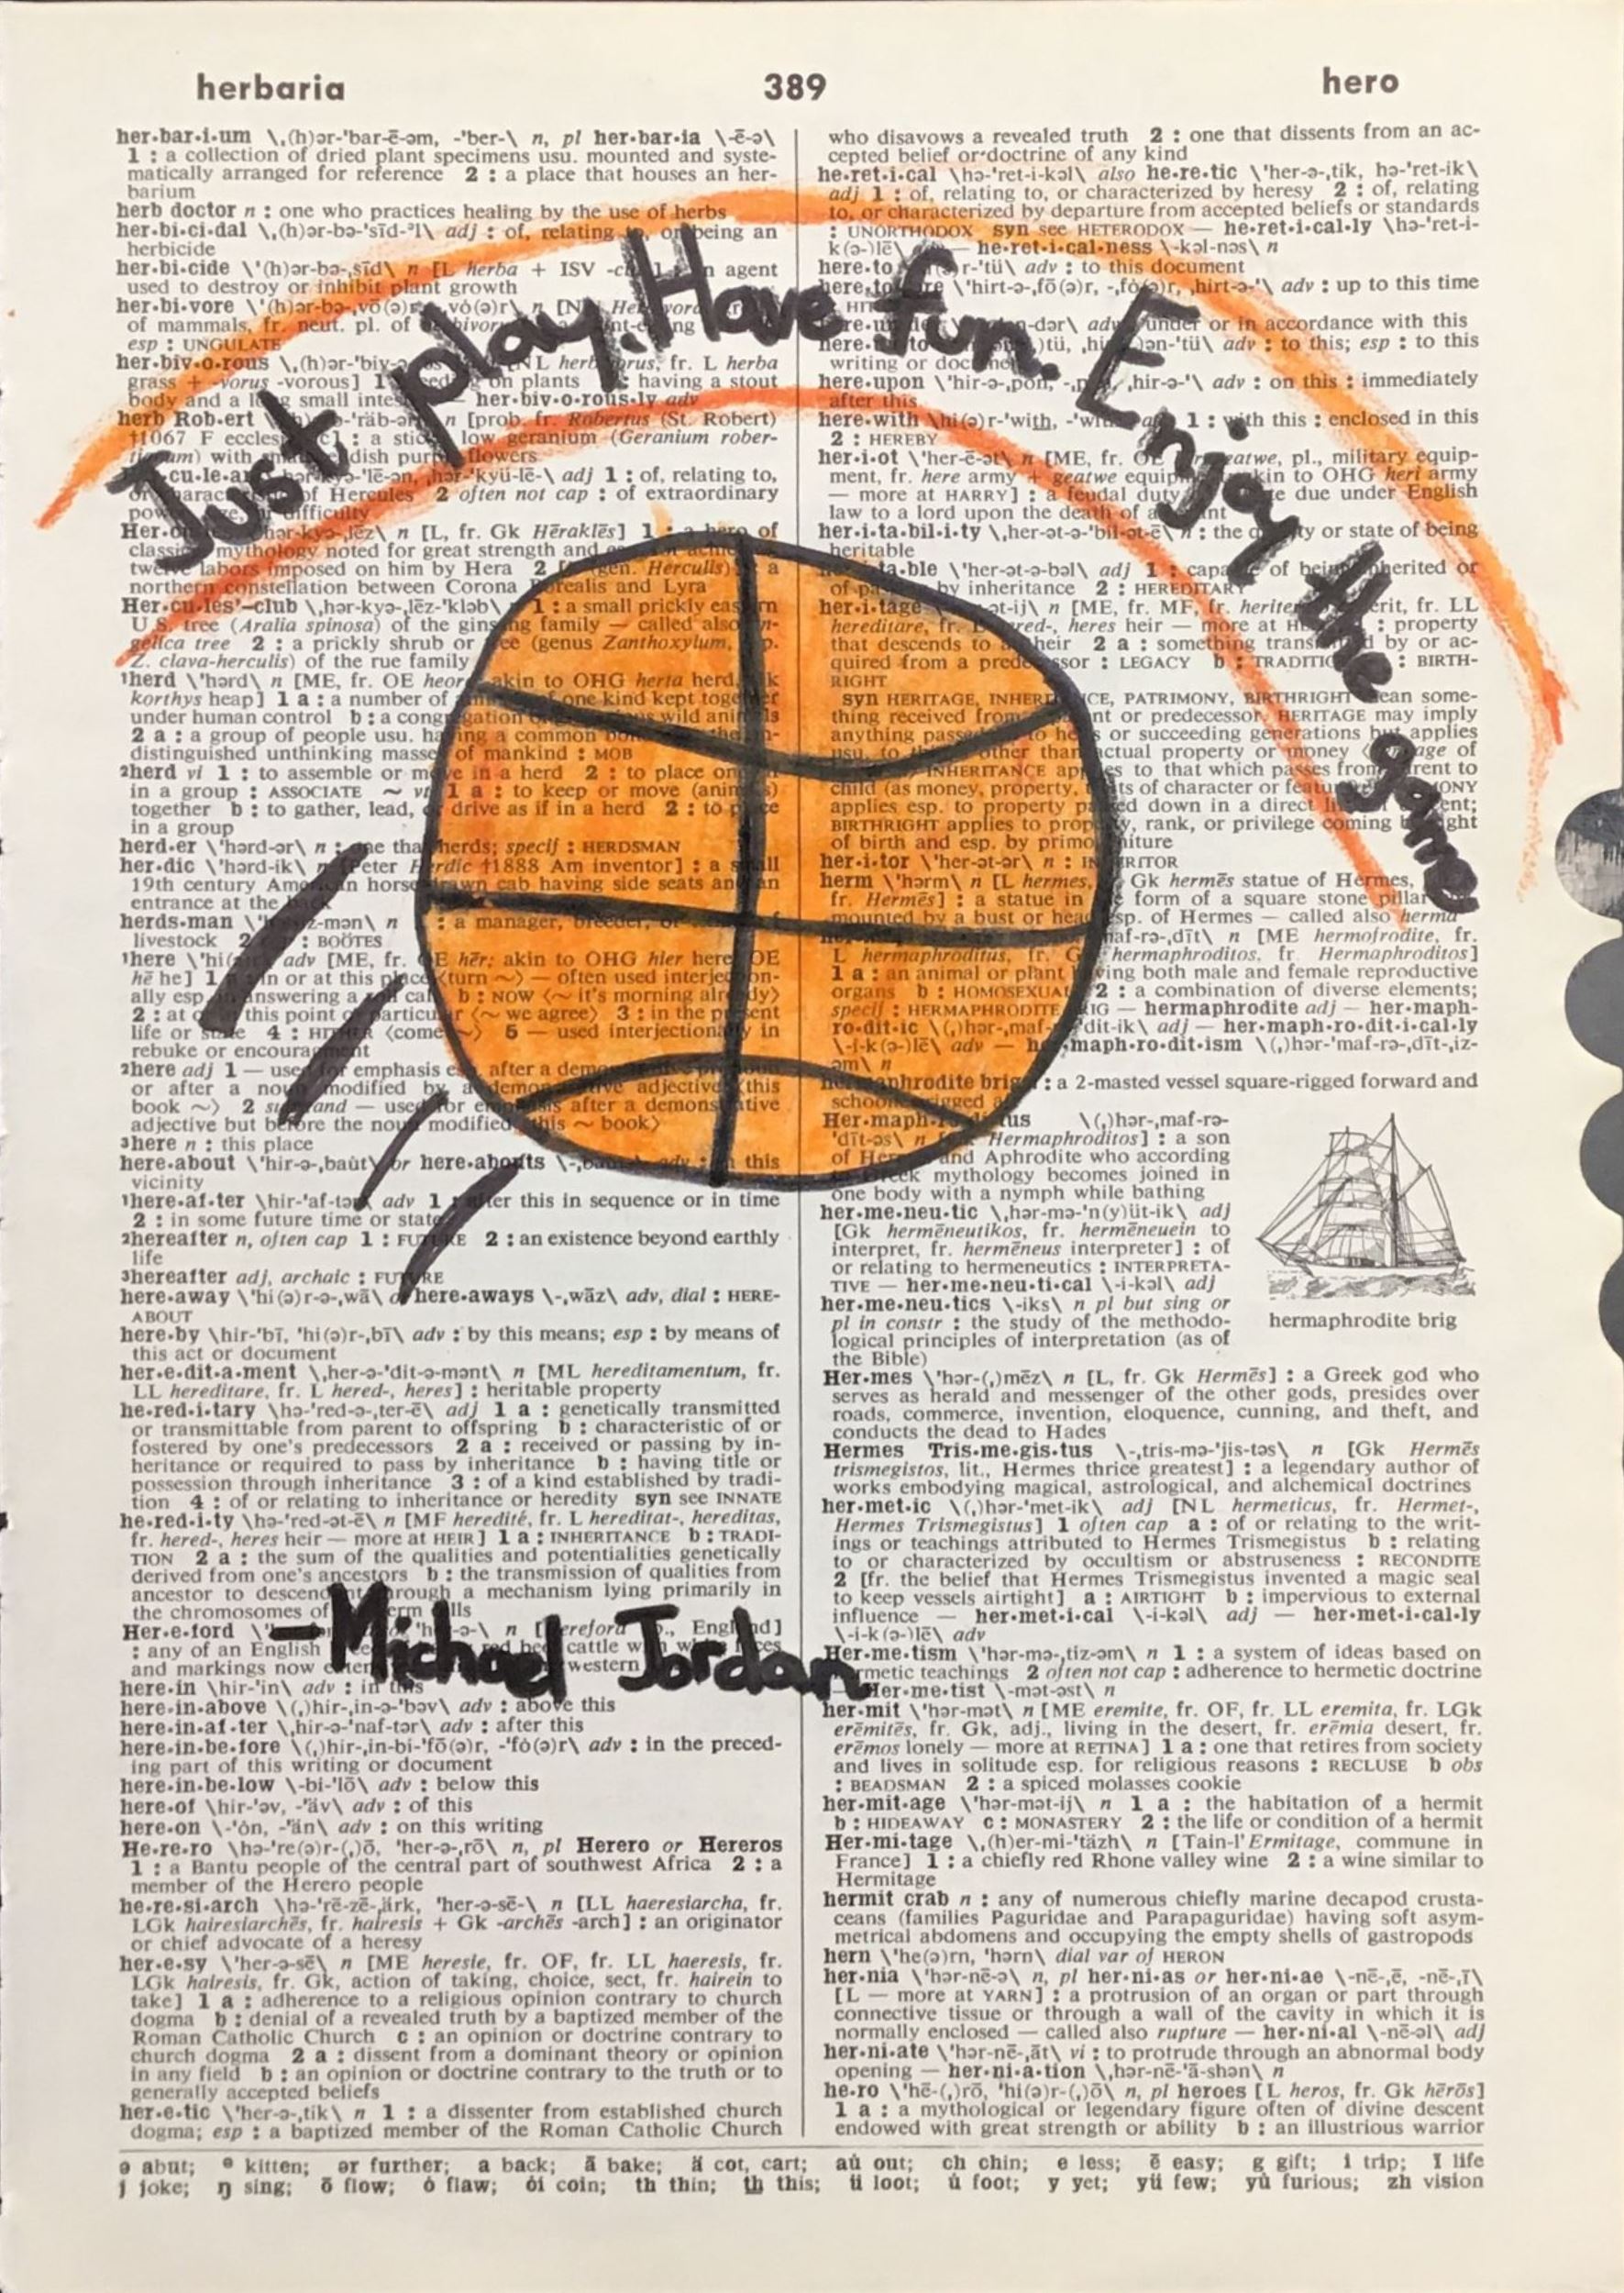 herbaria 389 hero
Just play. Have fun. Enjoy the game
her·bar·i·um \ˌ(h)ər-ˈbar-ē-əm, -ˈber-\ n, pl her·bar·ia \-ē-ə\
1 : a collection of dried plant specimens usu. mounted and syste-
matically arranged for reference 2 : a place that houses an her-
barium
herb doctor n : one who practices healing by the use of herbs
her·bi·cid·al \ˌ(h)ər-bə-ˈsīd-ᵊl\ adj : of, relating to, or being an
herbicide
her·bi·cide \ˈ(h)ər-bə-ˌsīd\ n [L herba + ISV agent
used to destroy or inhibit plant growth
her·bi·vore \ˈ(h)ər-bə-ˌvō(ə)r, vȯ(ə)r\ n
of mammals, fr. neut. pl. of
esp : UNGULATE
her·biv·o·rous \ˌ(h)ər-ˈbiv- fr. L herba
grass + -vorus -vorous] 1 on plants having a stout
body and a small her·biv·o·rous·ly adv
herb Rob·ert n [prob. fr. Robertus (St. Robert)
†1067 F : a low geranium (Geranium rober-
with flowers
adj 1 : of, relating to,
of Hercules 2 often not cap : of extraordinary
difficulty
n [L, fr. Gk Hēraklēs] 1 : a hero of
mythology noted for great strength and
twelve labors imposed on him by Hera 2 gen. Herculis) : a
northern constellation between Corona Borealis and Lyra
Her·cu·les'–club \ˌhər-kyə-ˌlēz-ˈkləb\ 1 : a small prickly eastern
U.S. tree (Aralia spinosa) of the ginseng family — called also
gelica tree 2 : a prickly shrub or tree (genus Zanthoxylum,
Z. clava-herculis) of the rue family
¹herd \ˈhərd\ n [ME, fr. OE heord akin to OHG herta herd,
korthys heap] 1 a : a number of one kind kept together
under human control b : a congregation wild animals
2 a : a group of people usu. having a common
distinguished unthinking masses of mankind : MOB
²herd vi 1 : to assemble or move in a herd 2 : to place
in a group : ASSOCIATE ~ vt 1 a : to keep or move (animals)
together b : to gather, lead, or drive as if in a herd 2 : to place
in a group
herd·er \ˈhərd-ər\ n : one that herds; specif : HERDSMAN
her·dic \ˈhərd-ik\ n [Peter Herdic †1888 Am inventor] : a small
19th century American horse-drawn cab having side seats and an
entrance at the back
herds·man n : a manager, breeder,
livestock 2 : BOÖTES
¹here adv [ME, fr. OE hēr; akin to OHG hier here, OE
hē he] 1 in or at this place ⟨turn ~⟩ — often used interjection-
ally esp. in answering a roll call b : NOW ⟨~ it's morning already⟩
2 : at or in this point or particular ⟨~ we agree⟩ 3 : in the present
life or state 4 : HITHER ⟨come ~⟩ 5 — used interjectionally in
rebuke or encouragement
²here adj 1 — used for emphasis esp. after a demonstrative pronoun
or after a noun modified by a demonstrative adjective ⟨this
book ~⟩ 2 substand — used for emphasis after a demonstrative
adjective but before the noun modified ⟨this ~ book⟩
³here n : this place
here·about \ˈhir-ə-ˌbau̇t\ or here·abouts this
vicinity
¹here·af·ter \hir-ˈaf-tər\ adv 1 : after this in sequence or in time
2 : in some future time or state
²hereafter n, often cap 1 : FUTURE 2 : an existence beyond earthly
life
³hereafter adj, archaic : FUTURE
here·away \ˈhi(ə)r-ə-ˌwā\ or here·aways \-ˌwāz\ adv, dial : HERE-
ABOUT
here·by \hir-ˈbī, ˈhi(ə)r-ˌbī\ adv : by this means; esp : by means of
this act or document
her·e·dit·a·ment \ˌher-ə-ˈdit-ə-mənt\ n [ML hereditamentum, fr.
LL hereditare, fr. L hered-, heres] : heritable property
he·red·i·tary \hə-ˈred-ə-ˌter-ē\ adj 1 a : genetically transmitted
or transmittable from parent to offspring b : characteristic of or
fostered by one's predecessors 2 a : received or passing by in-
heritance or required to pass by inheritance b : having title or
possession through inheritance 3 : of a kind established by tradi-
tion 4 : of or relating to inheritance or heredity syn see INNATE
he·red·i·ty \hə-ˈred-ət-ē\ n [MF heredité, fr. L hereditat-, hereditas,
fr. hered-, heres heir — more at HEIR] 1 a : INHERITANCE b : TRADI-
TION 2 a : the sum of the qualities and potentialities genetically
derived from one's ancestors b : the transmission of qualities from
ancestor to descendant through a mechanism lying primarily in
the chromosomes of germ cells
Her·e·ford n [Hereford England]
: any of an English cattle with white faces
and markings now western
here·in \hir-ˈin\ adv : in this
here·in·above \(ˌ)hir-ˌin-ə-ˈbəv\ adv : above this
here·in·af·ter \ˌhir-ə-ˈnaf-tər\ adv : after this
here·in·be·fore \(ˌ)hir-ˌin-bi-ˈfō(ə)r, -ˈfȯ(ə)r\ adv : in the preced-
ing part of this writing or document
here·in·be·low \-bi-ˈlō\ adv : below this
here·of \hir-ˈəv, -ˈäv\ adv : of this
here·on \-ˈȯn, -ˈän\ adv : on this writing
He·re·ro \hə-ˈre(ə)r-(ˌ)ō, ˈher-ə-ˌrō\ n, pl Herero or Hereros
1 : a Bantu people of the central part of southwest Africa 2 : a
member of the Herero people
he·re·si·arch \hə-ˈrē-zē-ˌärk, ˈher-ə-sē-\ n [LL haeresiarcha, fr.
LGk hairesiarchēs, fr. hairesis + Gk -archēs -arch] : an originator
or chief advocate of a heresy
her·e·sy \ˈher-ə-sē\ n [ME heresie, fr. OF, fr. LL haeresis, fr.
LGk hairesis, fr. Gk, action of taking, choice, sect, fr. hairein to
take] 1 a : adherence to a religious opinion contrary to church
dogma b : denial of a revealed truth by a baptized member of the
Roman Catholic Church c : an opinion or doctrine contrary to
church dogma 2 a : dissent from a dominant theory or opinion
in any field b : an opinion or doctrine contrary to the truth or to
generally accepted beliefs
her·e·tic \ˈher-ə-ˌtik\ n 1 : a dissenter from established church
dogma; esp : a baptized member of the Roman Catholic Church
who disavows a revealed truth 2 : one that dissents from an ac-
cepted belief or doctrine of any kind
he·ret·i·cal \hə-ˈret-i-kəl\ also he·re·tic \ˈher-ə-ˌtik, hə-ˈret-ik\
adj 1 : of, relating to, or characterized by heresy 2 : of, relating
to, or characterized by departure from accepted beliefs or standards
: UNORTHODOX syn see HETERODOX — he·ret·i·cal·ly \hə-ˈret-i-
k(ə-)lē\ — he·ret·i·cal·ness \-kəl-nəs\ n
here·to adv : to this document
\ˈhirt-ə-ˌfō(ə)r, -ˌfȯ(ə)r, ˌhirt-ə-ˈ\ adv : up to this time
adv : under or in accordance with this
adv : to this; esp : to this
writing or document
here·upon \ˈhir-ə-ˌpȯn, ˌhir-ə-ˈ\ adv : on this : immediately
after this
here·with \hi(ə)r-ˈwith, 1 : with this : enclosed in this
2 : HEREBY
her·i·ot \ˈher-ē-ət\ n [ME, fr. OE pl., military equip-
ment, fr. here army + geatwe akin to OHG heri army
— more at HARRY] : a feudal duty due under English
law to a lord upon the death of a
her·i·ta·bil·i·ty \ˌher-ət-ə-ˈbil-ət-ē\ n : the or state of being
heritable
\ˈher-ət-ə-bəl\ adj 1 : capable of being inherited or
of by inheritance 2 : HEREDITARY
her·i·tage n [ME, fr. MF, fr. heriter fr. LL
hereditare, fr. L heres heir — more at : property
that descends to heir 2 a : something transmitted by or ac-
quired from a predecessor : LEGACY b : TRADITION : BIRTH-
RIGHT
syn HERITAGE, INHERITANCE, PATRIMONY, BIRTHRIGHT mean some-
thing received from or predecessor. HERITAGE may imply
anything passed to heirs or succeeding generations but applies
other than actual property or money
INHERITANCE applies to that which passes from parent to
child (as money, property, of character or
applies esp. to property passed down in a direct
BIRTHRIGHT applies to property, rank, or privilege coming
of birth and esp. by primogeniture
her·i·tor \ˈher-ət-ər\ n : INHERITOR
herm \ˈhərm\ n [L hermes, Gk hermēs statue of Hermes,
fr. Hermēs] : a statue in form of a square stone pillar
mounted by a bust or head esp. of Hermes — called also herma
n [ME hermofrodite, fr.
L hermaphroditus, fr. hermaphroditos, fr Hermaphroditos]
1 a : an animal or plant having both male and female reproductive
organs b : HOMOSEXUAL 2 : a combination of diverse elements;
specif : HERMAPHRODITE BRIG — hermaphrodite adj — her·maph-
ro·dit·ic adj — her·maph·ro·dit·i·cal·ly
\-i-k(ə-)lē\ adv — her·maph·ro·dit·ism \(ˌ)hər-ˈmaf-rə-ˌdīt-ˌiz-
əm\ n
hermaphrodite brig : a 2-masted vessel square-rigged forward and
schooner-rigged
\(ˌ)hər-ˌmaf-rə-
ˈdīt-əs\ n Hermaphroditos] : a son
of Hermes and Aphrodite who according
to Greek mythology becomes joined in
one body with a nymph while bathing
her·me·neu·tic \ˌhər-mə-ˈn(y)üt-ik\ adj
[Gk hermēneutikos, fr. hermēneuein to
interpret, fr. hermēneus interpreter] : of
or relating to hermeneutics : INTERPRETA-
TIVE — her·me·neu·ti·cal \-i-kəl\ adj
her·me·neu·tics \-iks\ n pl but sing or
pl in constr : the study of the methodo-
logical principles of interpretation (as of
the Bible)
hermaphrodite brig
Her·mes \ˈhər-(ˌ)mēz\ n [L, fr. Gk Hermēs] : a Greek god who
serves as herald and messenger of the other gods, presides over
roads, commerce, invention, eloquence, cunning, and theft, and
conducts the dead to Hades
Hermes Tris·me·gis·tus \-ˌtris-mə-ˈjis-təs\ n [Gk Hermēs
trismegistos, lit., Hermes thrice greatest] : a legendary author of
works embodying magical, astrological, and alchemical doctrines
her·met·ic \(ˌ)hər-ˈmet-ik\ adj [NL hermeticus, fr. Hermet-,
Hermes Trismegistus] 1 often cap a : of or relating to the writ-
ings or teachings attributed to Hermes Trismegistus b : relating
to or characterized by occultism or abstruseness : RECONDITE
2 [fr. the belief that Hermes Trismegistus invented a magic seal
to keep vessels airtight] a : AIRTIGHT b : impervious to external
influence — her·met·i·cal \-i-kəl\ adj — her·met·i·cal·ly
\-i-k(ə-)lē\ adv
Her·me·tism \ˈhər-mə-ˌtiz-əm\ n 1 : a system of ideas based on
hermetic teachings 2 often not cap : adherence to hermetic doctrine
— Her·me·tist \-mət-əst\ n
her·mit \ˈhər-mət\ n [ME eremite, fr. OF, fr. LL eremita, fr. LGk
erēmitēs, fr. Gk, adj., living in the desert, fr. erēmia desert, fr.
erēmos lonely — more at RETINA] 1 a : one that retires from society
and lives in solitude esp. for religious reasons : RECLUSE b obs
: BEADSMAN 2 : a spiced molasses cookie
her·mit·age \ˈhər-mət-ij\ n 1 a : the habitation of a hermit
b : HIDEAWAY c : MONASTERY 2 : the life or condition of a hermit
Her·mi·tage \ˌ(h)er-mi-ˈtäzh\ n [Tain-l'Ermitage, commune in
France] 1 : a chiefly red Rhone valley wine 2 : a wine similar to
Hermitage
hermit crab n : any of numerous chiefly marine decapod crusta-
ceans (families Paguridae and Parapaguridae) having soft asym-
metrical abdomens and occupying the empty shells of gastropods
hern \ˈhe(ə)rn, ˈhərn\ dial var of HERON
her·nia \ˈhər-nē-ə\ n, pl her·ni·as or her·ni·ae \-nē-ˌē, -nē-ˌī\
[L — more at YARN] : a protrusion of an organ or part through
connective tissue or through a wall of the cavity in which it is
normally enclosed — called also rupture — her·ni·al \-nē-əl\ adj
her·ni·ate \ˈhər-nē-ˌāt\ vi : to protrude through an abnormal body
opening — her·ni·a·tion \ˌhər-nē-ˈā-shən\ n
he·ro \ˈhē-(ˌ)rō, ˈhi(ə)r-(ˌ)ō\ n, pl heroes [L heros, fr. Gk hērōs]
1 a : a mythological or legendary figure often of divine descent
endowed with great strength or ability b : an illustrious warrior
-Michael Jordan
ə abut; ᵊ kitten; ər further; a back; ā bake; ä cot, cart; au̇ out; ch chin; e less; ē easy; g gift; i trip; ī life
j joke; ŋ sing; ō flow; ȯ flaw; ȯi coin; th thin; th this; ü loot; u̇ foot; y yet; yü few; yu̇ furious; zh vision